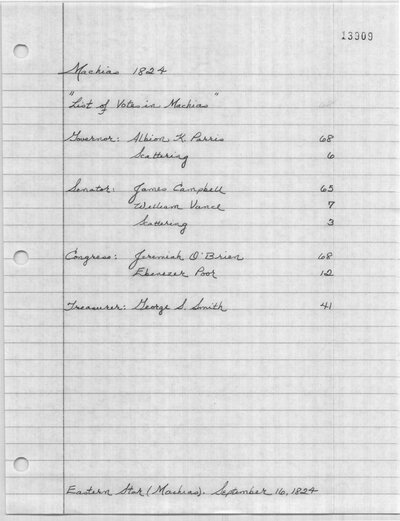 13909
Machias 1824
"List of Votes in Machias"
Governor: Albion K. Parris 68
Scattering 6
Senator: James Campbell 65
William Vance 7
Scattering 3
Congress: Jeremiah O'Brien 68
Ebenezer Poor 12
Treasurer: George S. Smith 41
Eastern Star (Machias). September 16, 1824